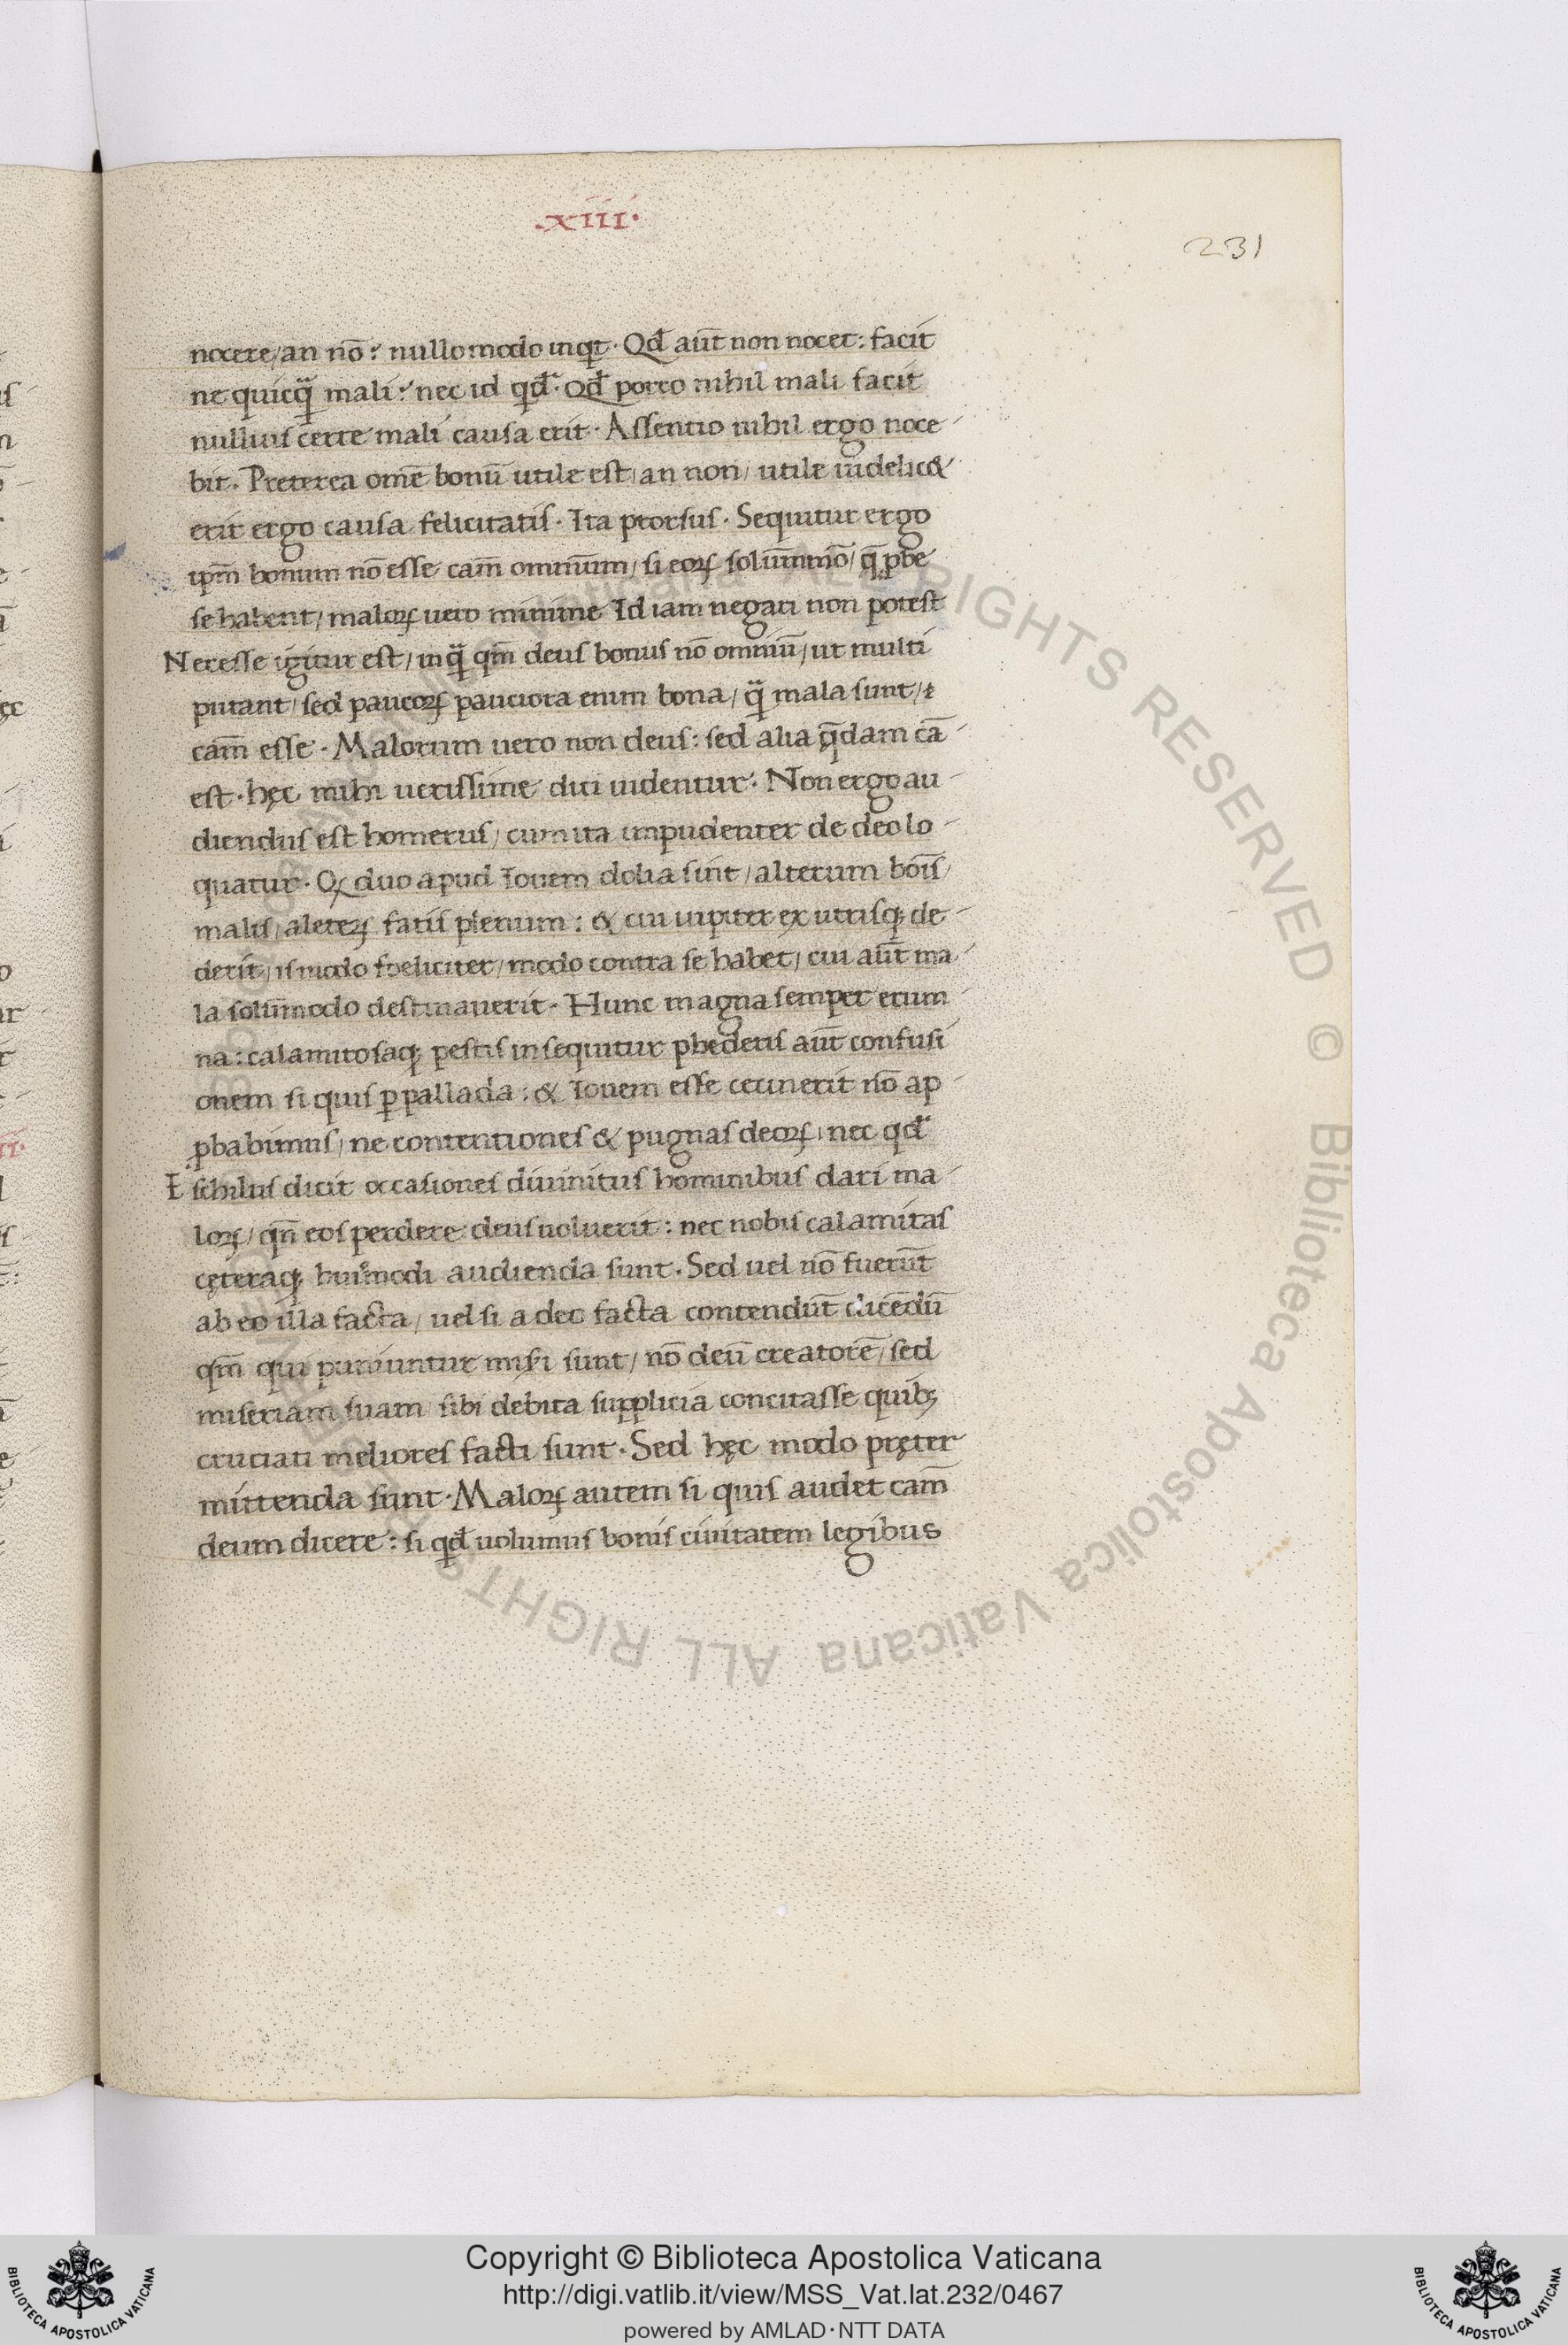 .xiii.
231
nocere/ an nō? nullo modo inqt. Qđ aūt non nocet: facit
ne quicq̃ mali? nec id qđ. Qđ porro nihil mali facit
nullius certe mali causa erit. Assentio nihil ergo noce-
bit. Preterea omē bonū utile est/ an non/ utile uidelic&
erit ergo causa felicitatis. Ita prorsus. Sequitur ergo
ipm̄ bonum nō esse cam̄ omnium/ si eoꝝ solūmmō/ q̄ ꝓbe
se habent/ maloꝝ uero minime Id iam negari non potest
Necesse igitur est/ inq̃ qm̄ deus bonus nō omniū/ ut multi
putant/ sed paucoꝝ pauciora enim bona/ q̃ mala sunt/
cam̄ esse. Malorum uero non deus: sed alia q̄dam cā
est. hęc mihi uerissime dici uidentur. Non ergo au-
diendus est homerus/ cum ita impudenter de deo lo-
quatur. Qꝝ duo apud Iouem dolia sint/ alterum boīs/
malis/ aleteꝝ fatis plenum: & cui iupiter ex utrisq; de-
derit/ is modo foeliciter/ modo contra se habet/ cui aūt ma-
la solūmodo destinauerit. Hunc magna semper erum-
na: calamitosaq; pestis insequitur phederis aūt confusi
onem si quis ꝑ pallada: & Iouem esse cecinerit nō ap-
ꝓbabimus/ ne contentiones & pugnas deoꝝ/ nec qđ
Eschilus dicit occasiones diuinitus hominibus dari ma-
loꝝ/ qn̄ eos perdere deus uoluerit: nec nobis calamitas
cęteraq; huiͥmodi audienda sunt. Sed uel nō fuerūt
ab eo illa facta/ uel si a deo facta contendūt dicēdū
qm̄ qui puniuntur misi sunt/ nō deū creatorē/ sed
miseriam suam sibi debita supplicia concitasse quib;
cruciati meliores facti sunt. Sed hęc modo pręter
mittenda sunt. Maloꝝ autem si quis audet cam̄
deum dicere: si qđ uolumus bonis ciuitatem legibus
ALL RIGHTS RESERVED © Biblioteca Apostolica Vaticana
Copyright © Biblioteca Apostolica Vaticana
http://digi.vatlib.it/view/MSS_Vat.lat.232/0467
powered by AMLAD·NTT DATA
BIBLIOTECA APOSTOLICA VATICANA
BIBLIOTECA APOSTOLICA VATICANA